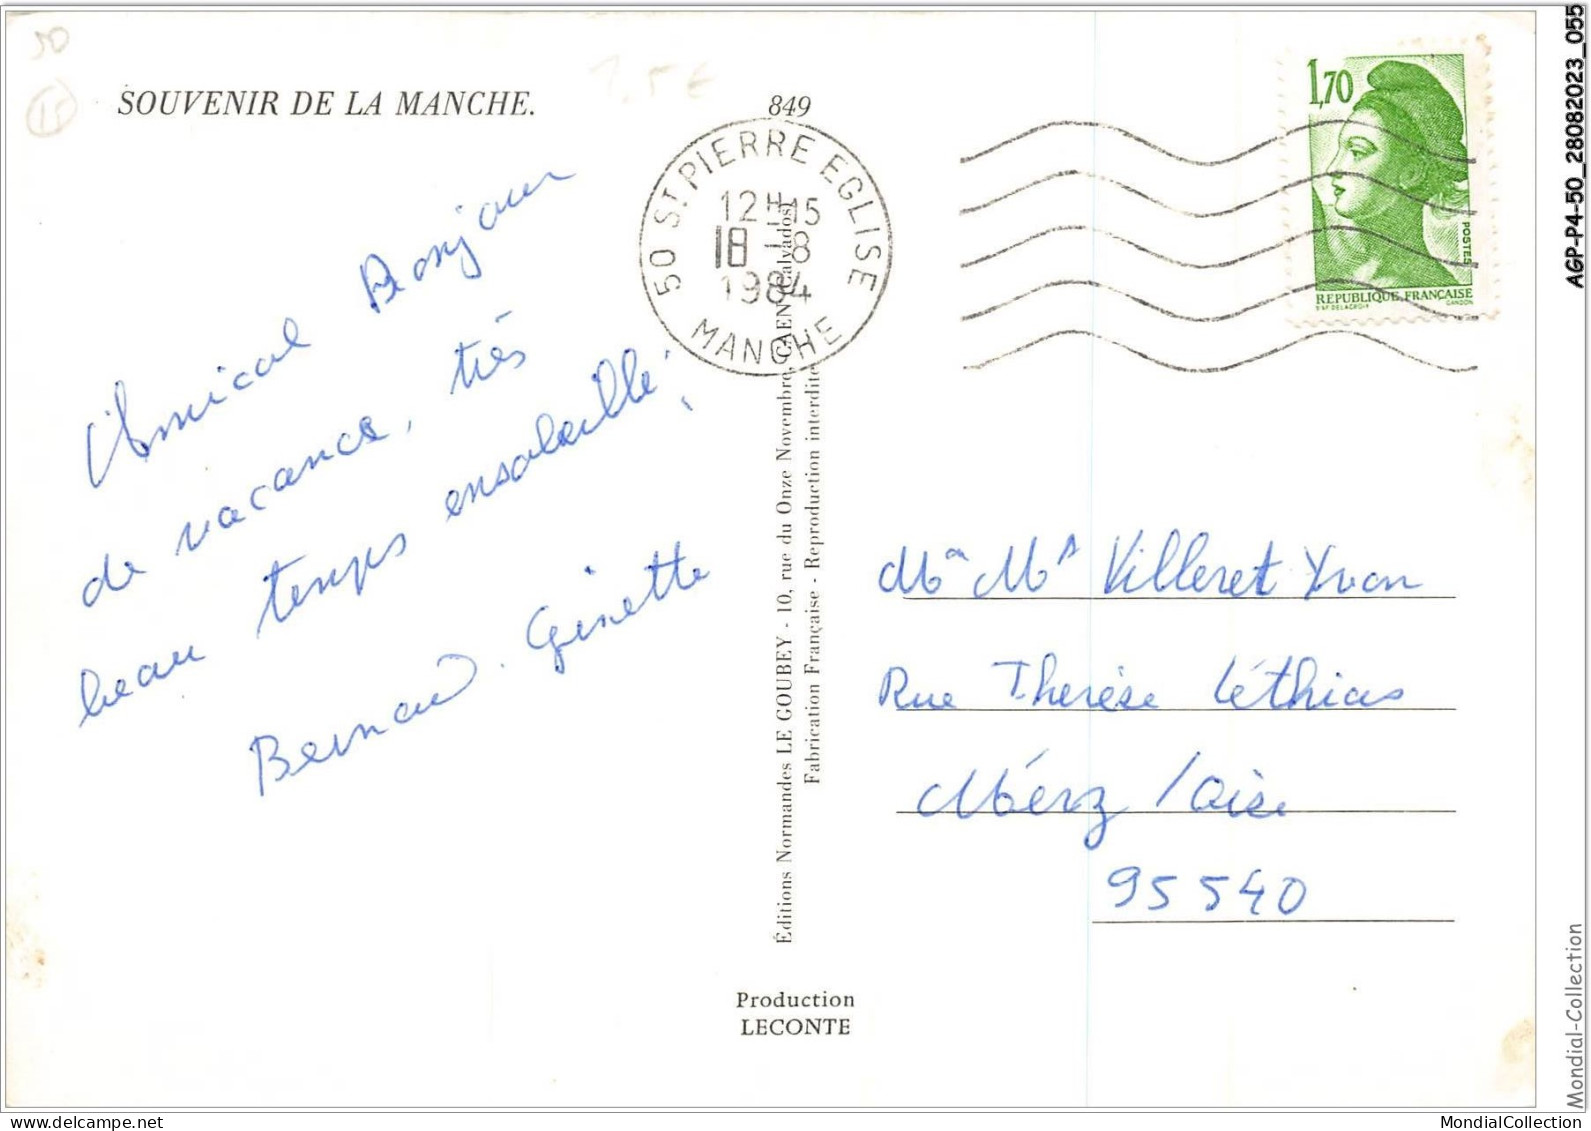 50
15
1,5€
SOUVENIR DE LA MANCHE.
849
Amical Bonjour
de vacance, très
beau temps ensoleillé!
Bernard. Ginette
50 ST PIERRE EGLISE
12H15
18-8
1984
MANCHE
1,70
POSTES
REPUBLIQUE FRANÇAISE
D'AP. DELACROIX
GANDON
Éditions Normandes LE GOUBEY - 10, rue du Onze Novembre, CAEN (Calvados)
Fabrication Française - Reproduction interdite
Villeret Yvon
Rue Therèse Léthias
Mérz / Oise
95540
Production
LECONTE
AGP-P4-50_28082023_055
Mondial-Collection
www.delcampe.net
MondialCollection